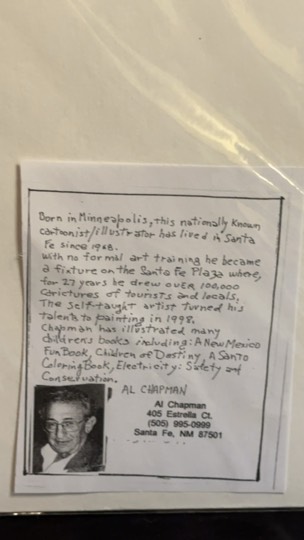 Born in Minneapolis, this nationally known
cartoonist/illustrator has lived in Santa
Fe since 1968.
With no formal art training he became
a fixture on the Santa Fe Plaza where,
for 27 years he drew over 100,000
carictures of tourists and locals.
The self-taught artist turned his
talents to painting in 1998.
Chapman has illustrated many
children's books including: A New Mexico
Fun Book, Children of Destiny, A Santo
Coloring Book, Electricity: Safety and
Conservation.
AL CHAPMAN
Al Chapman
405 Estrella Ct.
(505) 995-0999
Santa Fe, NM 87501